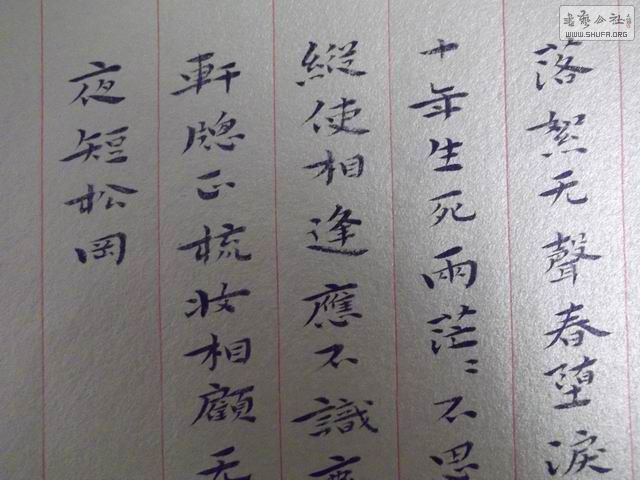 落絮无聲春堕淚
十年生死兩茫〻不思
縱使相逢應不識
軒牕正梳妝相顧无
夜短松岡
書藝公社
WWW.SHUFA.ORG